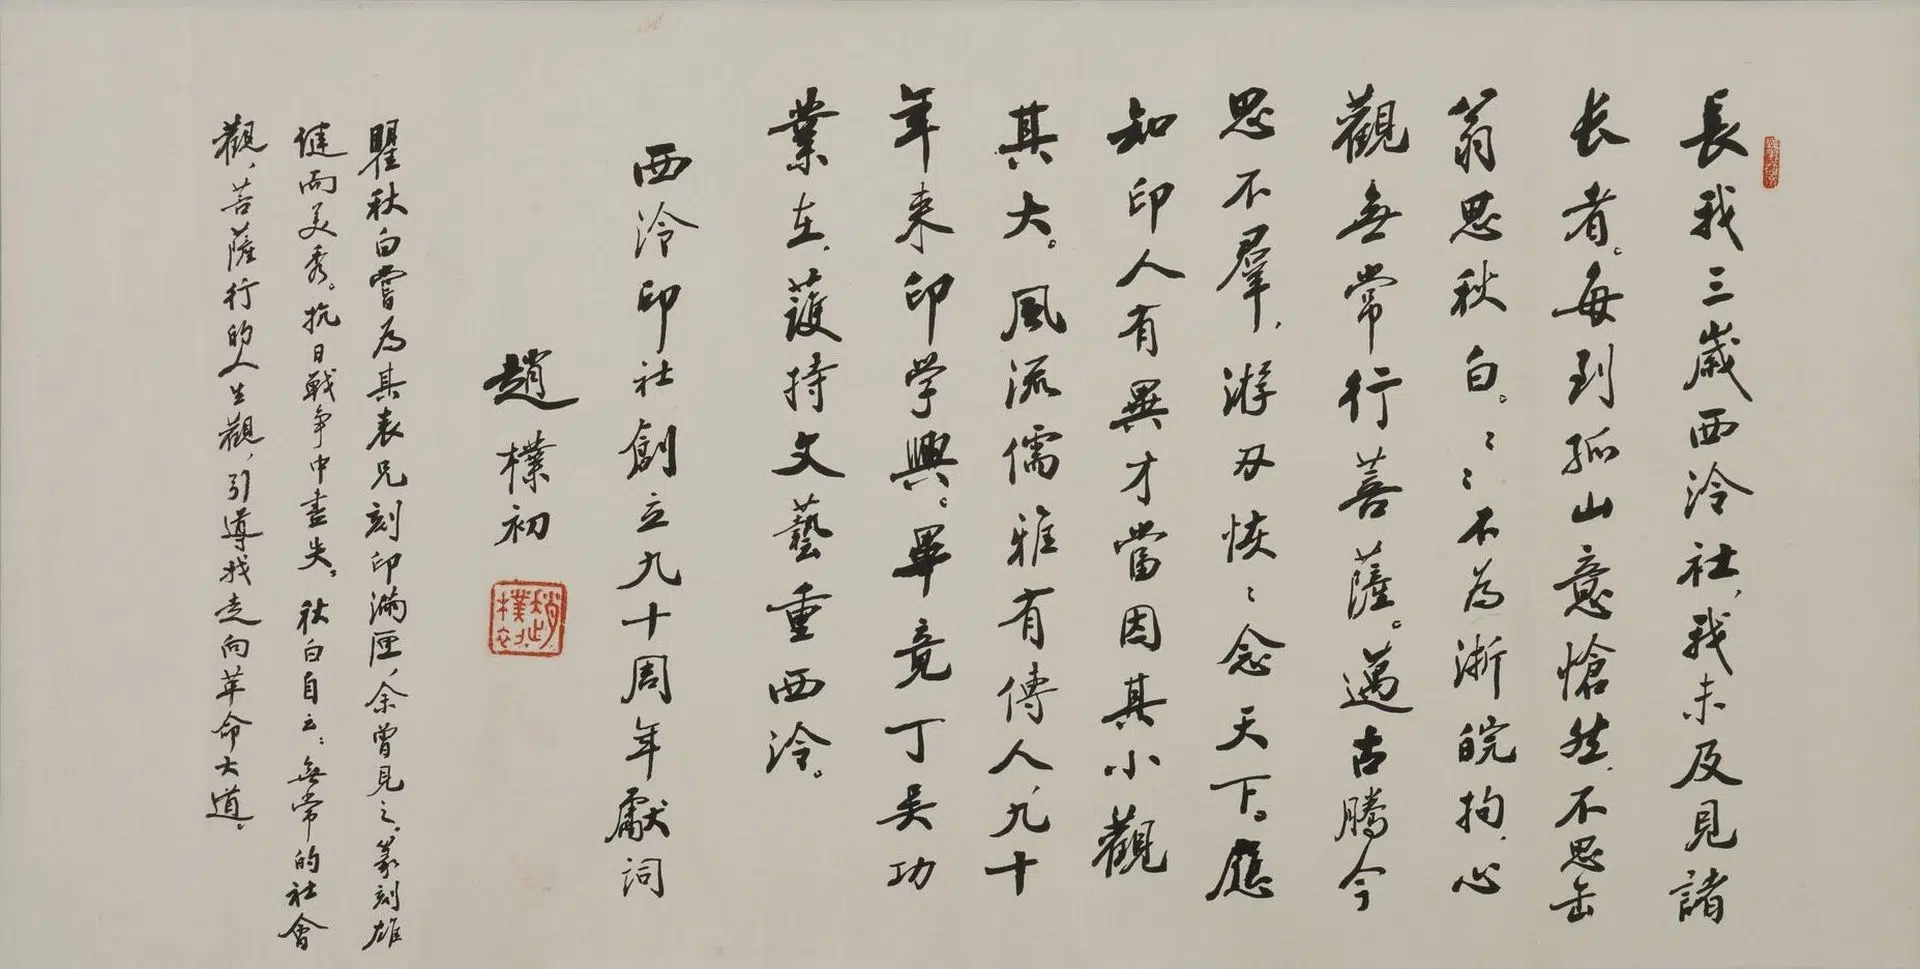 長我三歲西泠社，我未及見諸
长者。每到孤山意愴然，不思缶
翁思秋白。〻〻不為浙皖拘，心
觀無常行菩薩。邁古騰今
思不羣，游刃恢〻念天下。應
知印人有異才，當因其小觀
其大。風流儒雅有傳人，九十
年來印学興。畢竟丁吴功
業在，護持文藝重西泠。
西泠印社創立九十周年獻詞
趙樸初
趙樸初
瞿秋白嘗為其表兄刻印滿匣，余曾見之，篆刻雄
健而美秀。抗日戰争中盡失。秋白自云：無常的社會
觀，菩薩行的人生觀，引導我走向革命大道。